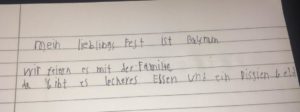 mein lieblings Fest ist Bairam
wir feiern es mit der Familie
da gibt es leckeres Essen und ein bisslen